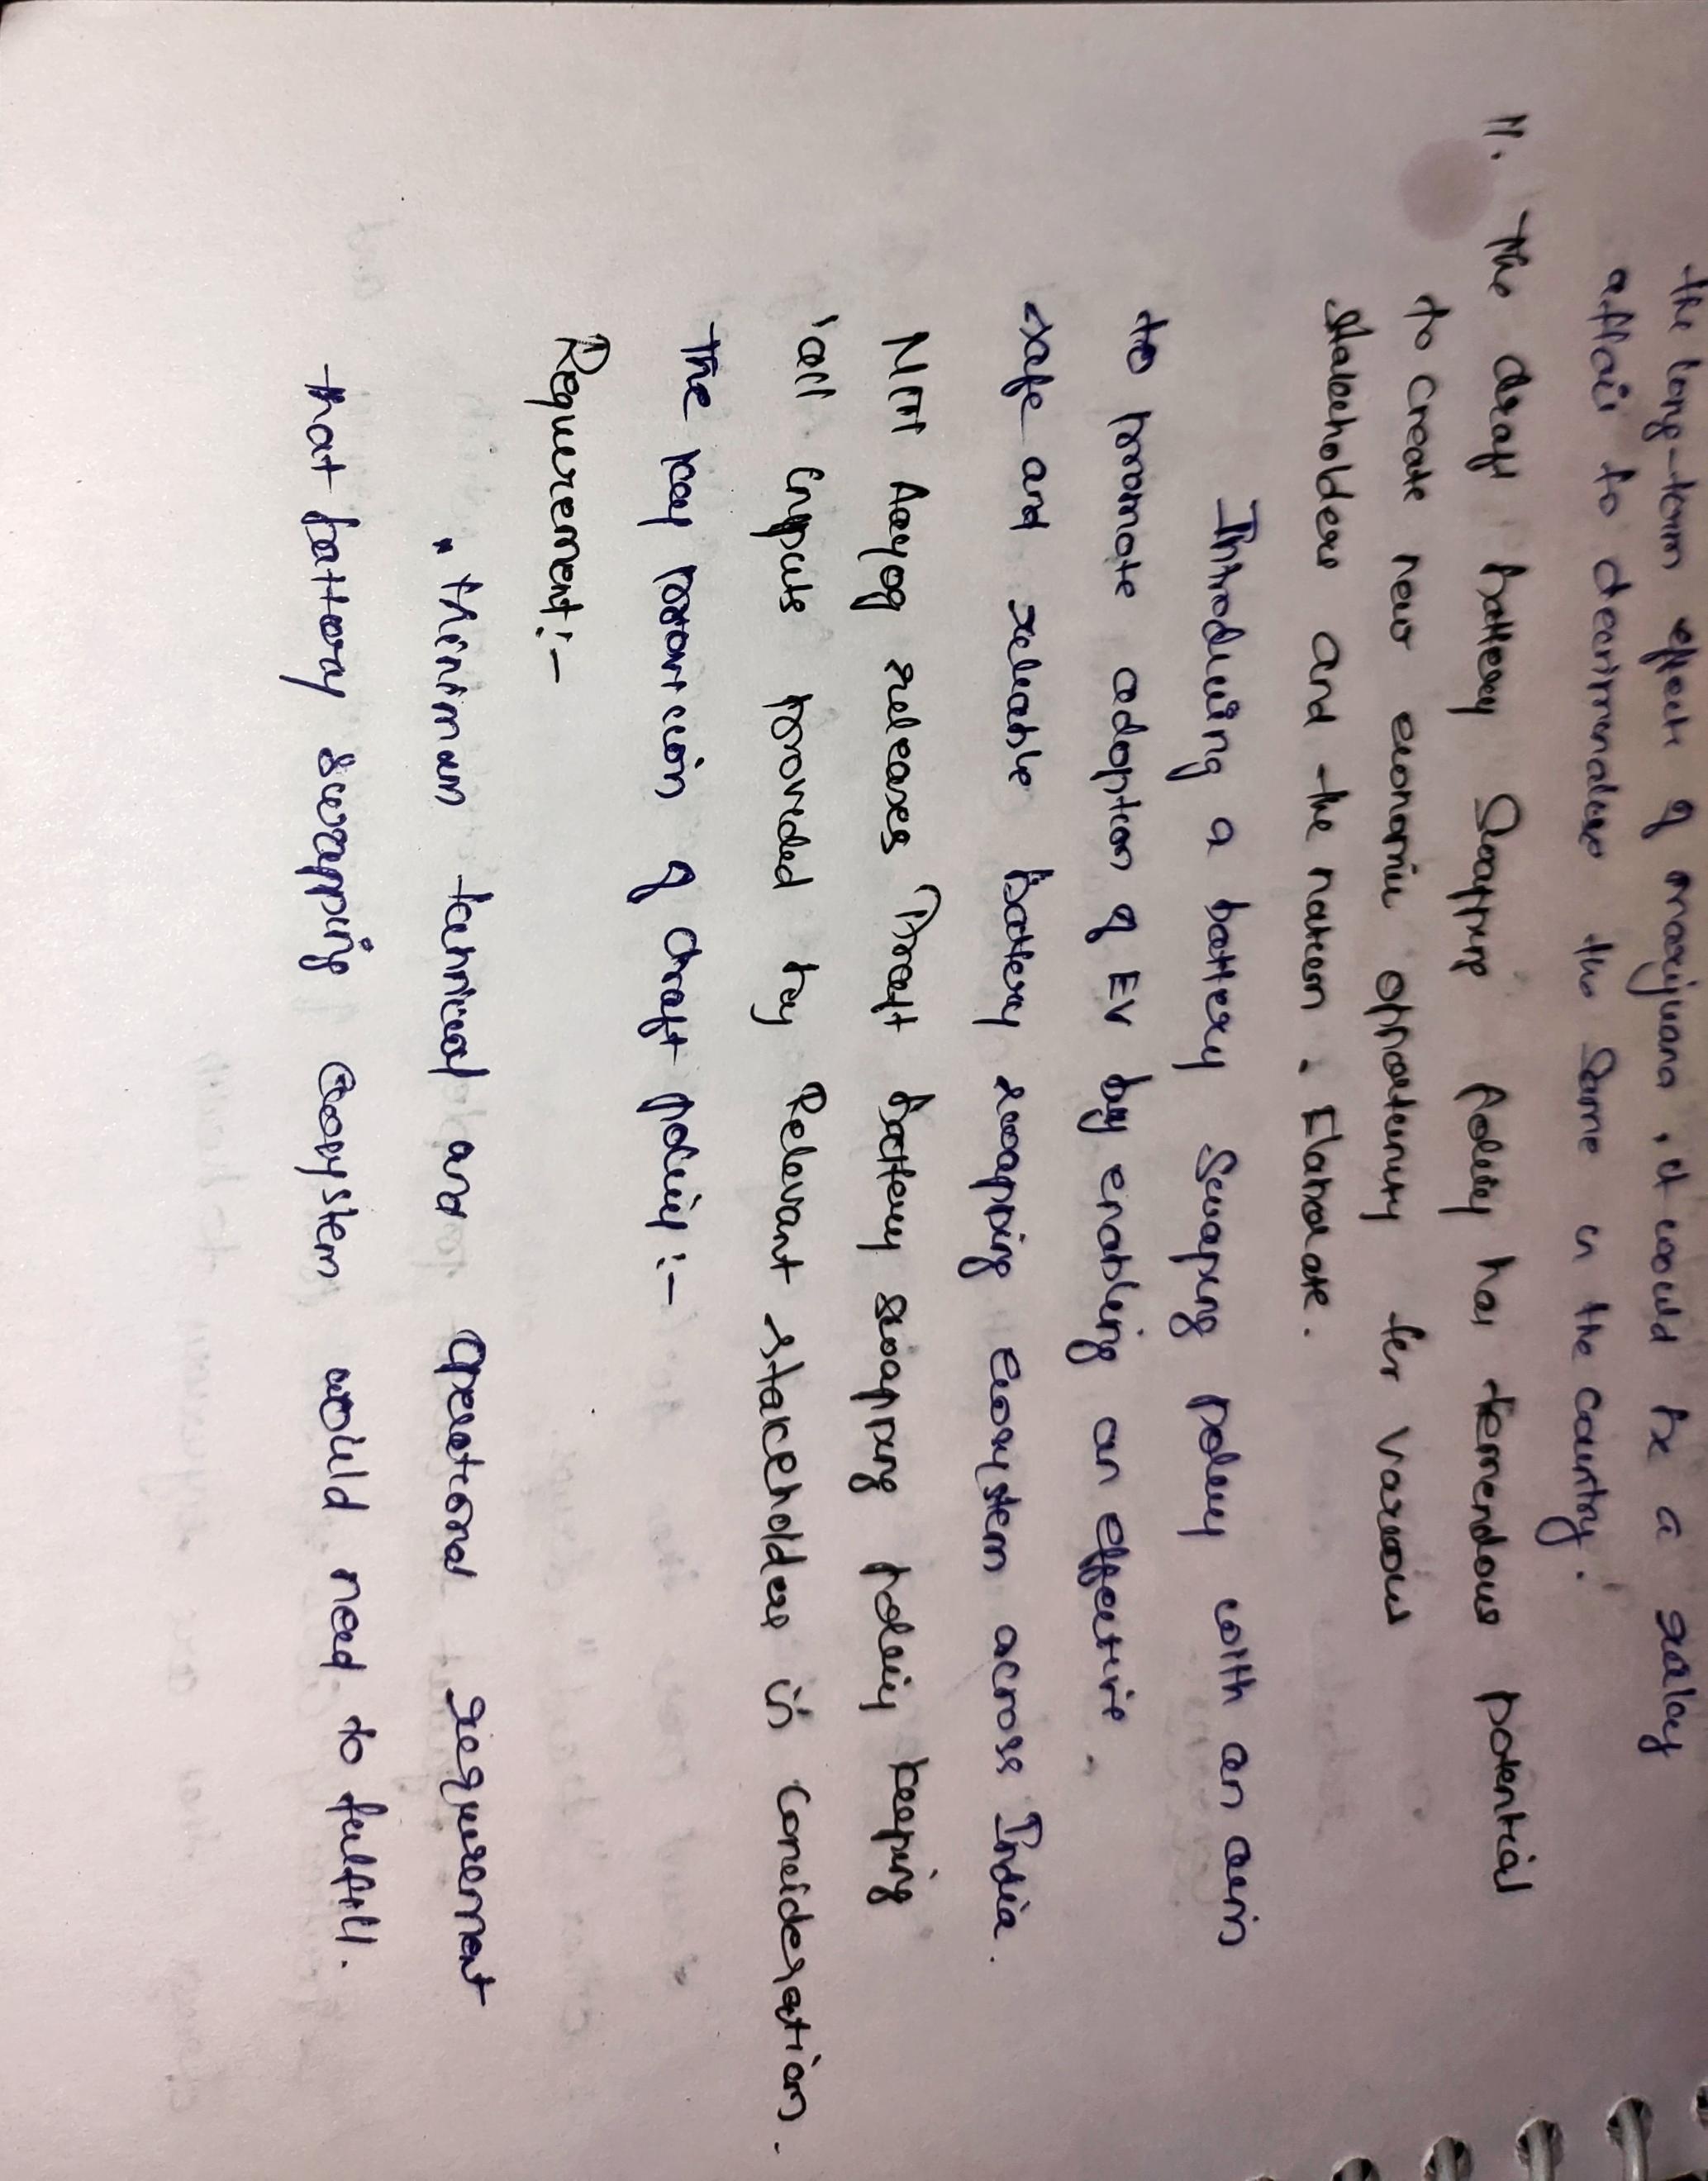 the long-term effects of marijuana, it would be a
affair to decriminalise the same in the country.
11. The draft battery Swapping Policy has tremendous potential
to create new economic opportunity for various
Stakeholders and the nation. Elaborate.
Introducing a battery Swaping policy with an aim
to promote adoption of EV by enabling an effective
safe and reliable Battery swapping ecosystem across India.
NITI Aayog releases Draft battery swapping policy keeping
all inputs provided by Relevant stakeholders in consideration.
The key provision of draft policy:-
Requirement:-
Minimum technical and operational requirement
that battery swapping Ecosystem would need to fulfill.